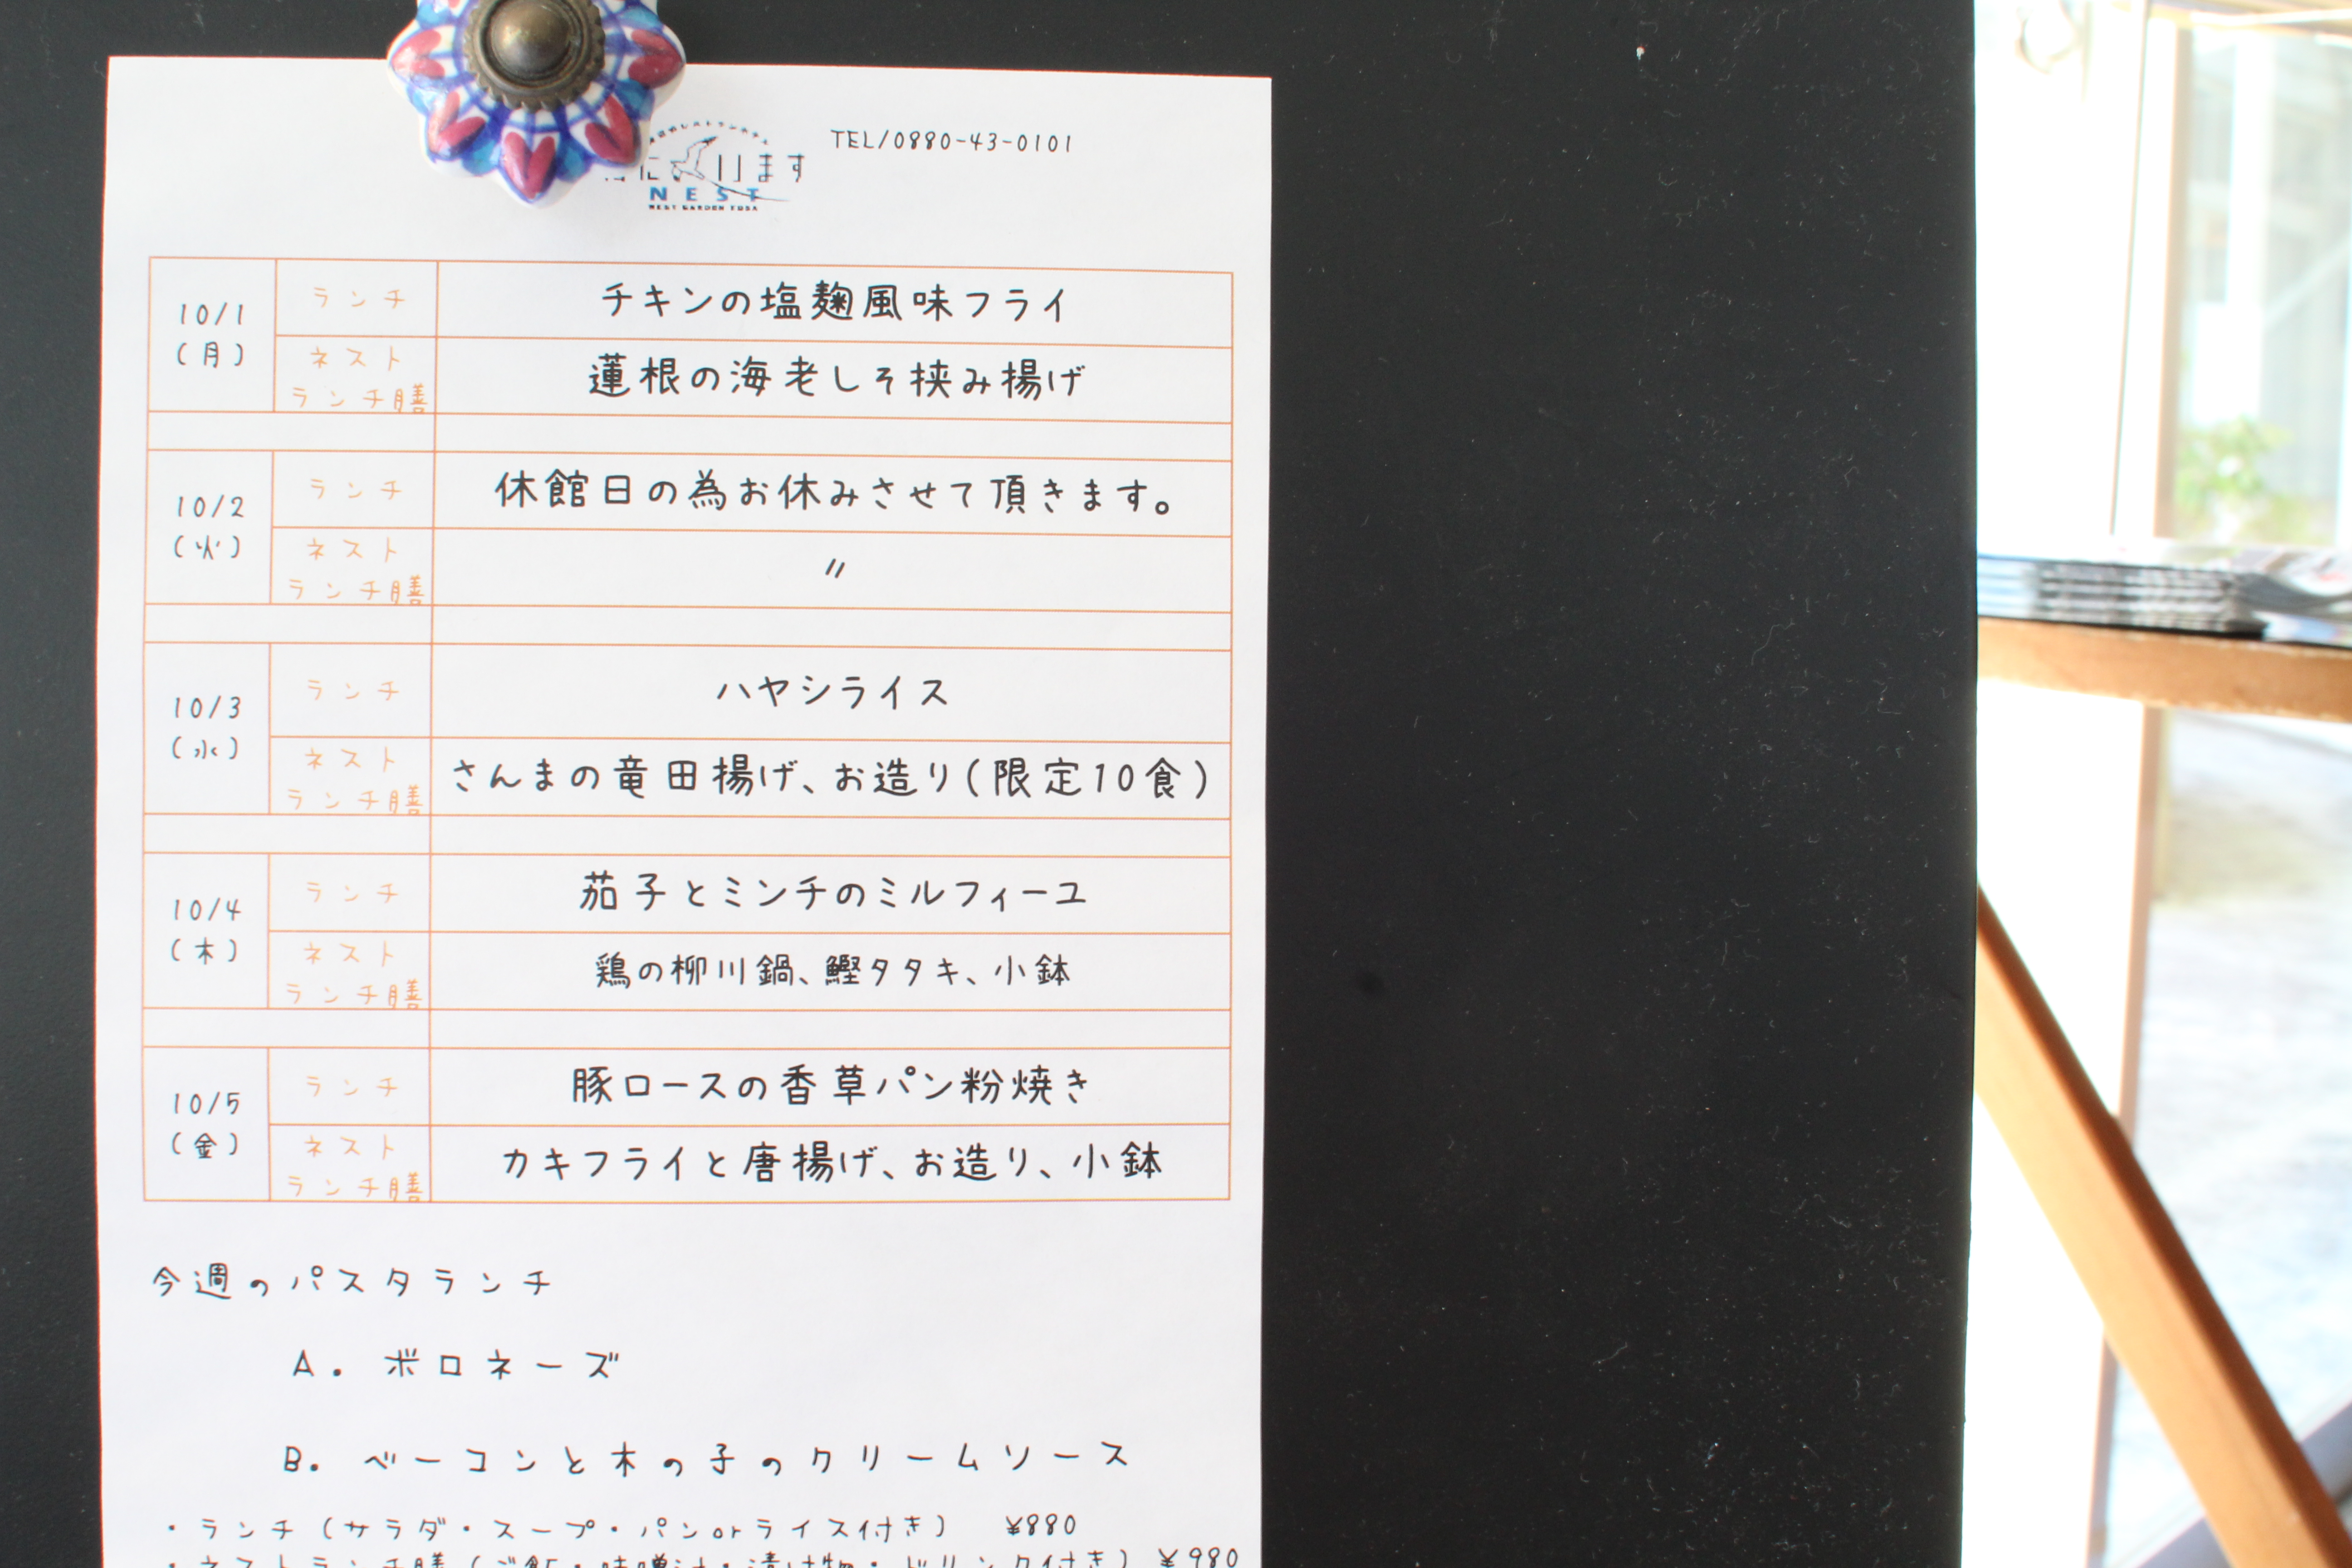 TEL/0880-43-0101
ります
NEST
WEST GARDEN TOSA
10/1
(月)
ランチ
チキンの塩麹風味フライ
ネスト
ランチ膳
蓮根の海老しそ挟み揚げ
10/2
(火)
ランチ
休館日の為お休みさせて頂きます。
ネスト
ランチ膳
〃
10/3
(水)
ランチ
ハヤシライス
ネスト
ランチ膳
さんまの竜田揚げ、お造り(限定10食)
10/4
(木)
ランチ
茄子とミンチのミルフィーユ
ネスト
ランチ膳
鶏の柳川鍋、鰹タタキ、小鉢
10/5
(金)
ランチ
豚ロースの香草パン粉焼き
ネスト
ランチ膳
カキフライと唐揚げ、お造り、小鉢
今週のパスタランチ
A. ボロネーズ
B. ベーコンと木の子のクリームソース
・ランチ(サラダ・スープ・パンorライス付き) ¥880
・ネストランチ膳(ご飯・味噌汁・漬け物・ドリンク付き) ¥980